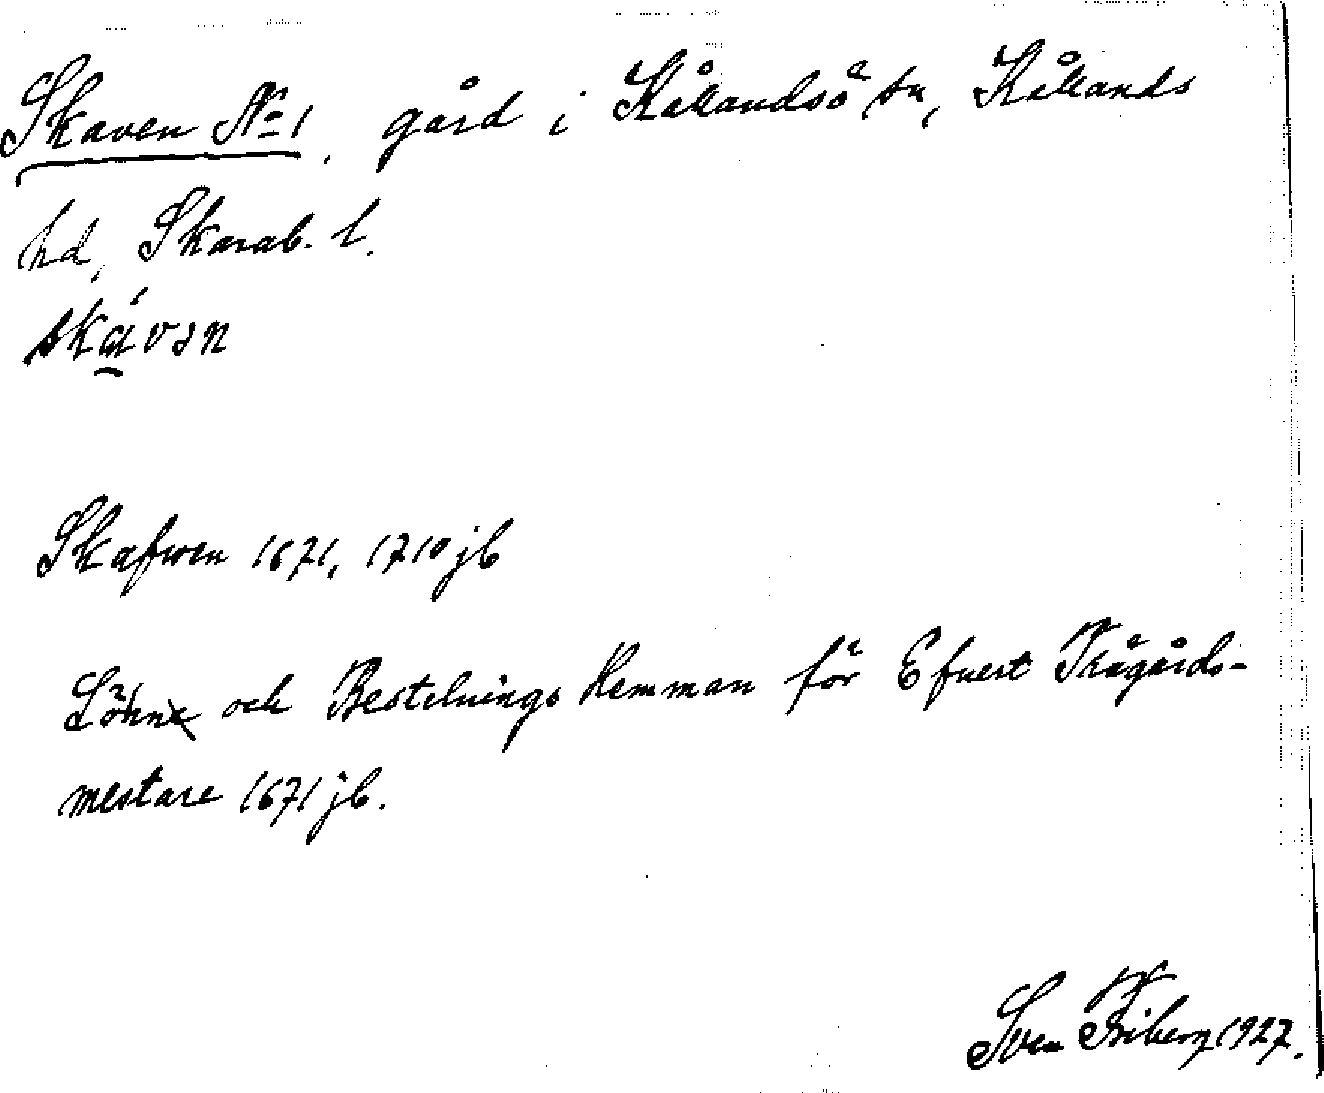 Skaven No 1, gård i Kållandsö sn, Kållands
hd, Skarab. l.
skávən
Skafwen 1671, 1710 jb
Löhn och Bestelnings Hemman för Efwert Trägårds-
mestare 1671 jb.
Sven Friberg 1927.